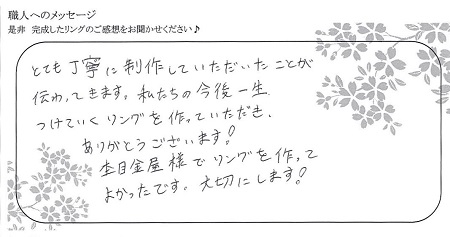 職人へのメッセージ
是非 完成したリングのご感想をお聞かせください♪
とても丁寧に制作していただいたことが
伝わってきます。私たちの今後一生
つけていくリングを作っていただき、
ありがとうございます!
杢目金屋様でリングを作って
よかったです。大切にします!